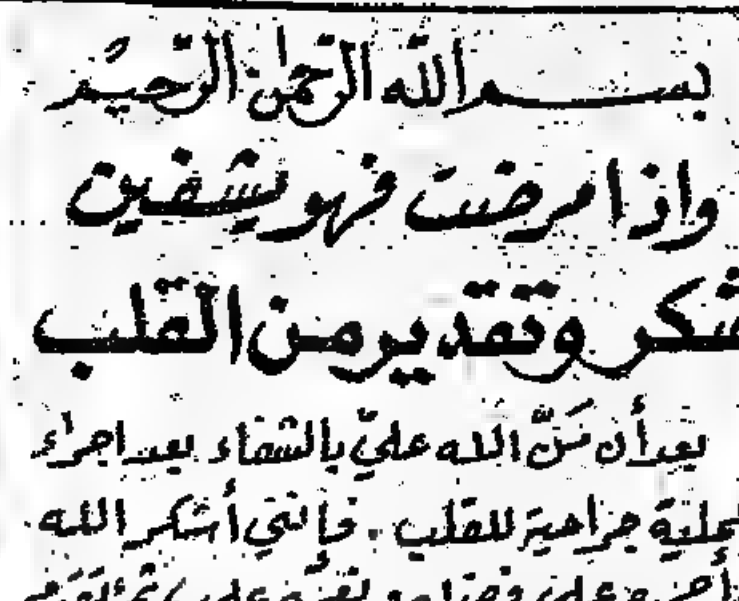 بسم الله الرحمن الرحيم
واذا مرضت فهو يشفين
شكر وتقدير من القلب
بعد أن منَّ الله عليّ بالشفاء بعد اجراء
عملية جراحية للقلب. فإنني أشكر الله
على